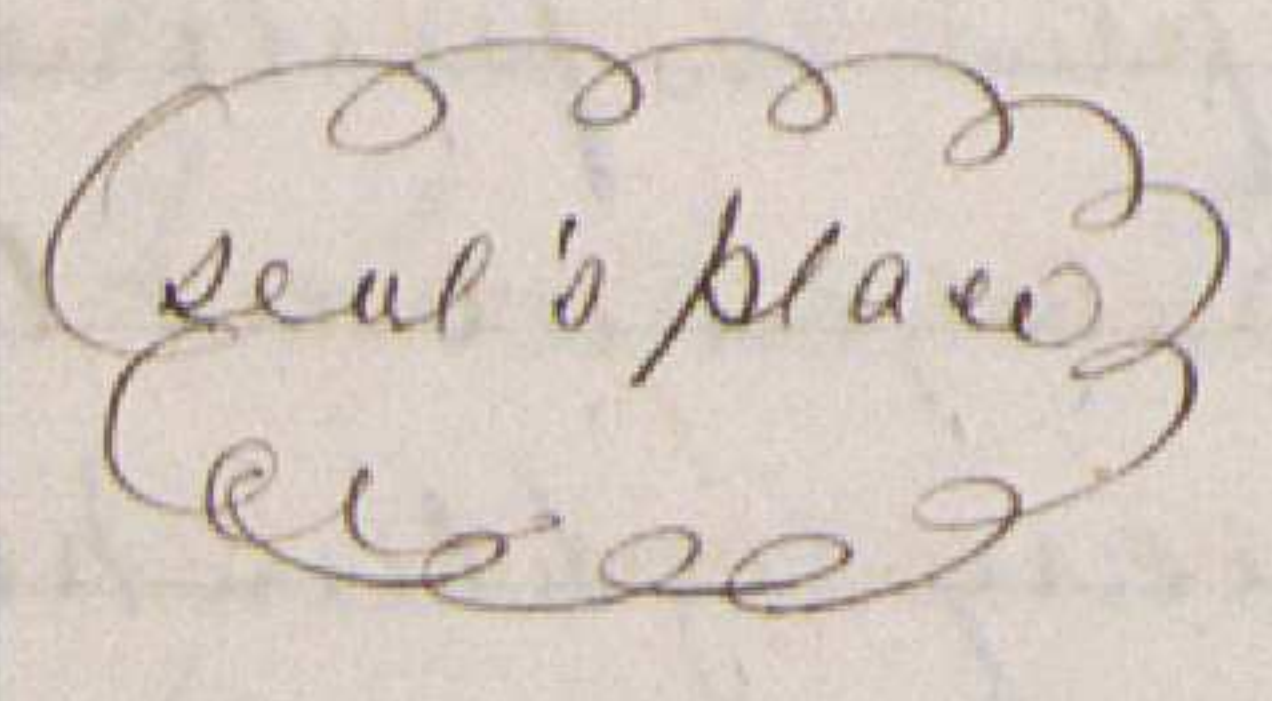 seal's place